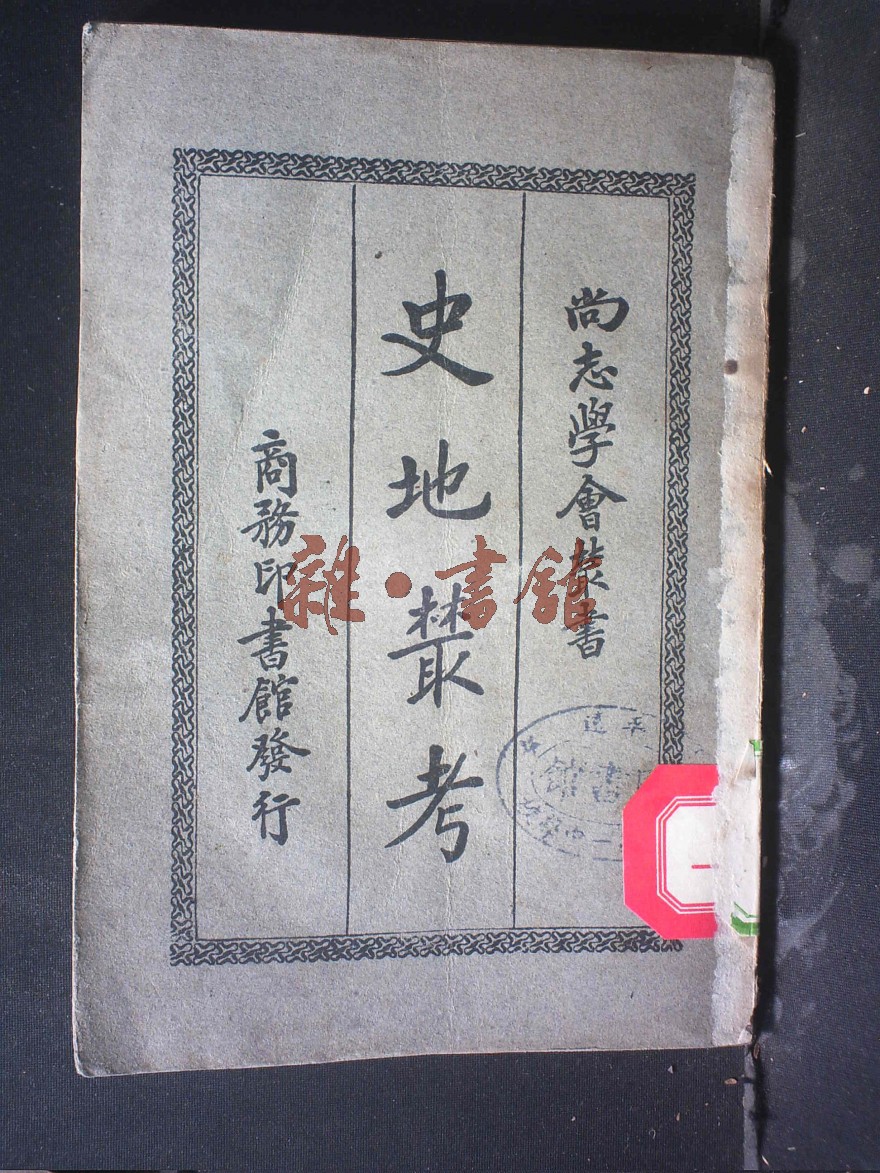 尚志學會叢書
史地叢考
商務印書館發行
雜·書館
書館
一